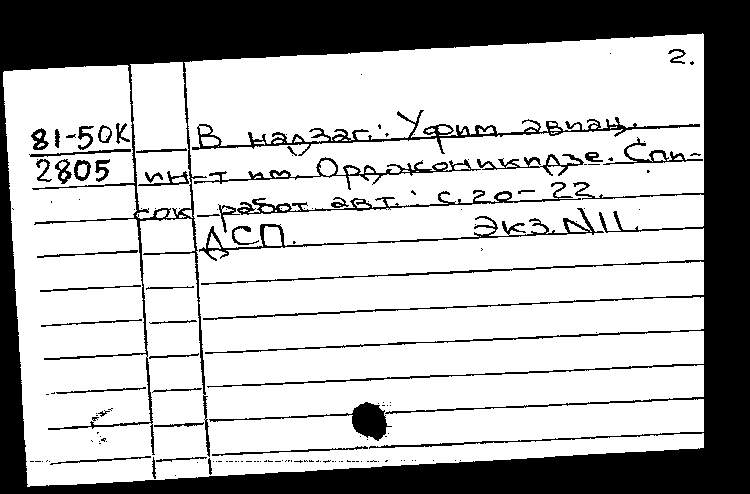 2.
81-50К В надзаг.: Уфим. авиац.
2805 ин-т им. Орджоникидзе. Спи-
сок работ авт.: с. 20-22.
ДСП. Экз. N11.